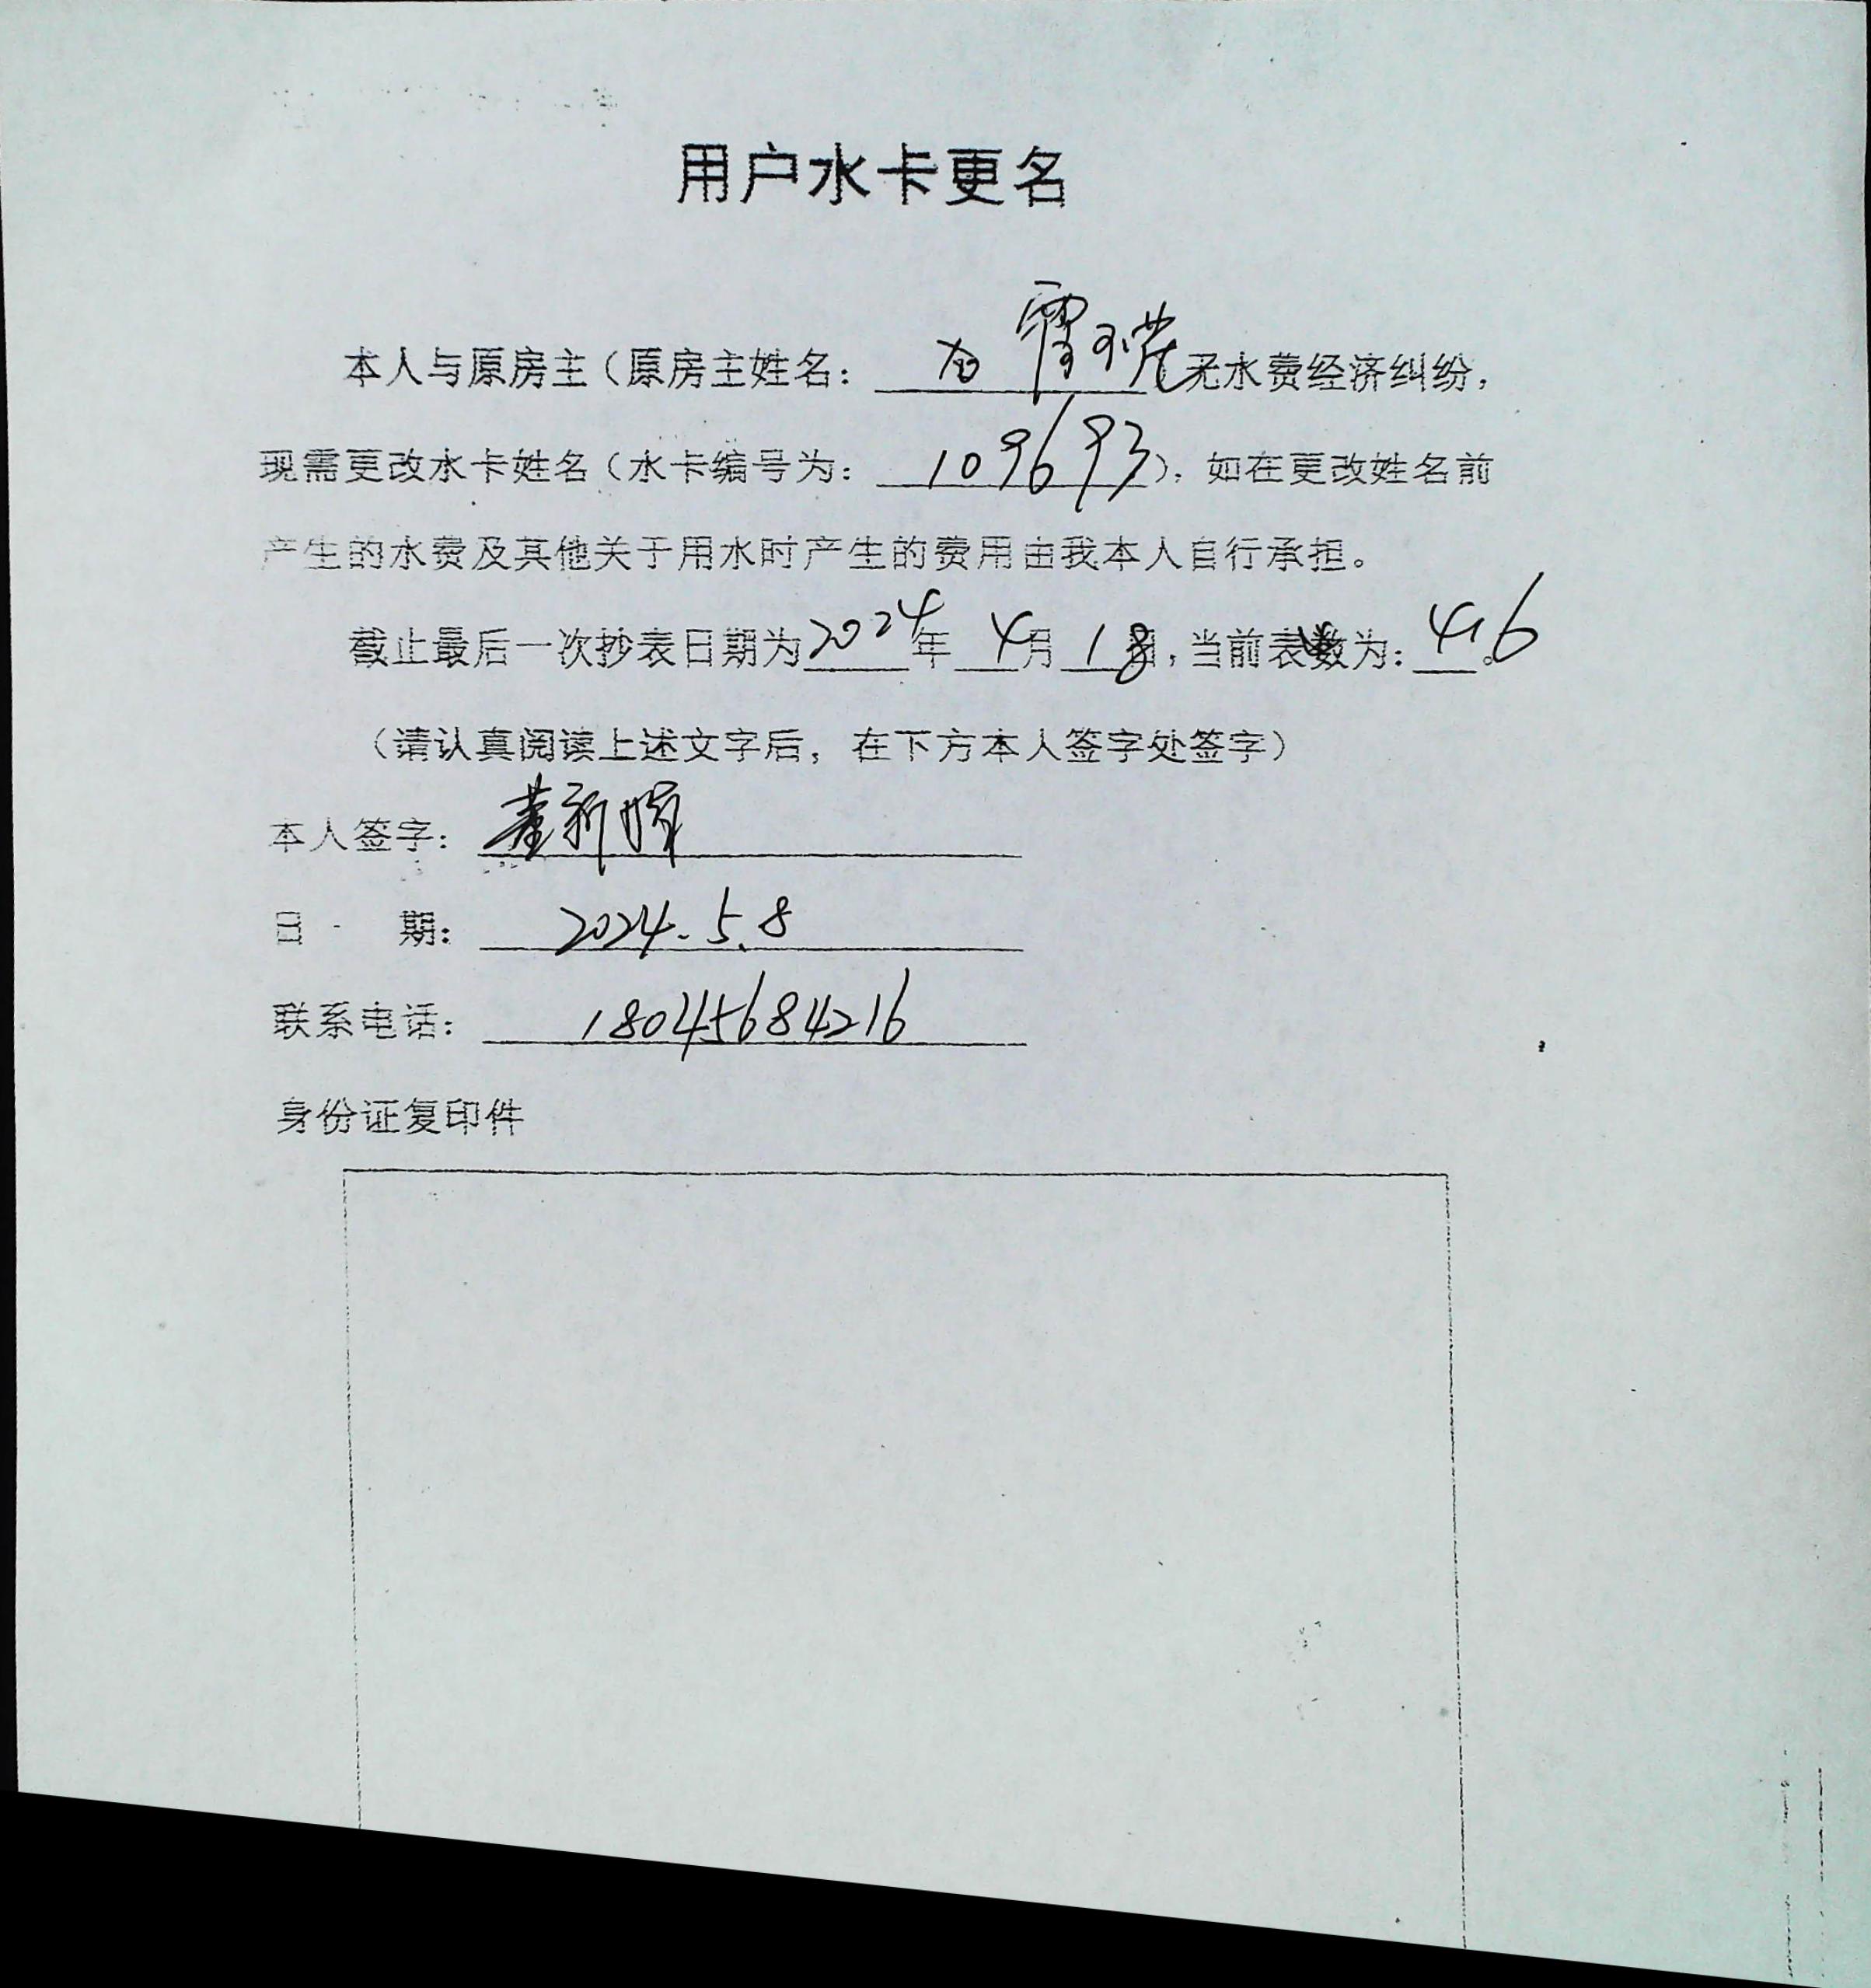 用户水卡更名
本人与原房主（原房主姓名： 无水费经济纠纷，
现需更改水卡姓名（水卡编号为： 109693），如在更改姓名前
产生的水费及其他关于用水时产生的费用由我本人自行承担。
截止最后一次抄表日期为2024年 4月 18日，当前表数为： 416。
（请认真阅读上述文字后，在下方本人签字处签字）
本人签字： 董新
日 期： 2024.5.8
联系电话： 18045684216
身份证复印件